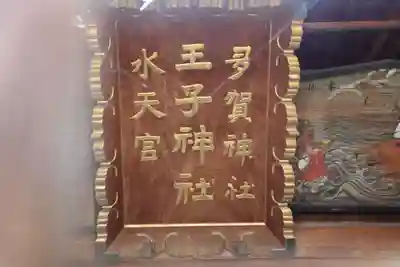 多賀神社
王子神社
水天宮